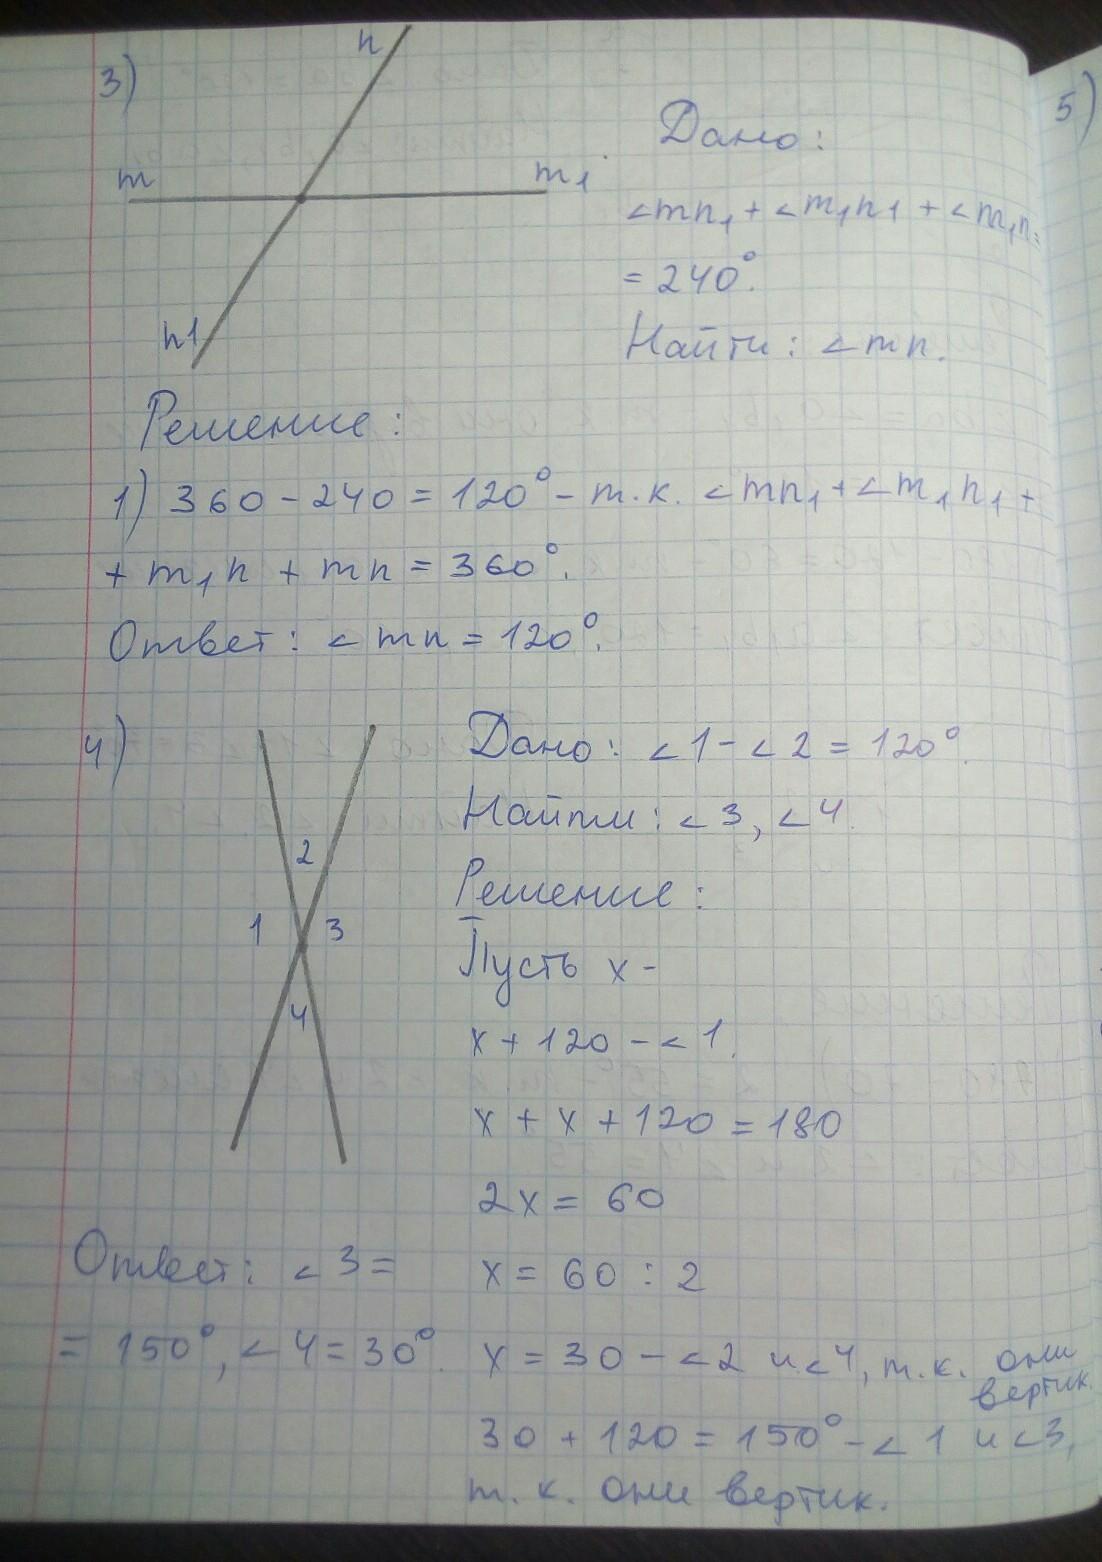 3)
n
m
m1
n1
Дано:
<mn1 + <m1n1 + <m1n =
= 240°.
Найти: <mn.
Решение:
1) 360 - 240 = 120° - т.к. <mn1 + <m1n1 +
+ m1n + mn = 360°.
Ответ: <mn = 120°.
4)
2
1
3
4
Дано: <1 - <2 = 120°.
Найти: <3, <4.
Решение:
Пусть x -
x + 120 - <1.
x + x + 120 = 180
2x = 60
x = 60 : 2
x = 30 - <2 и <4, т.к. они
вертик.
30 + 120 = 150° - <1 и <3,
т. к. они вертик.
Ответ: <3 =
= 150°, <4 = 30°.
5)